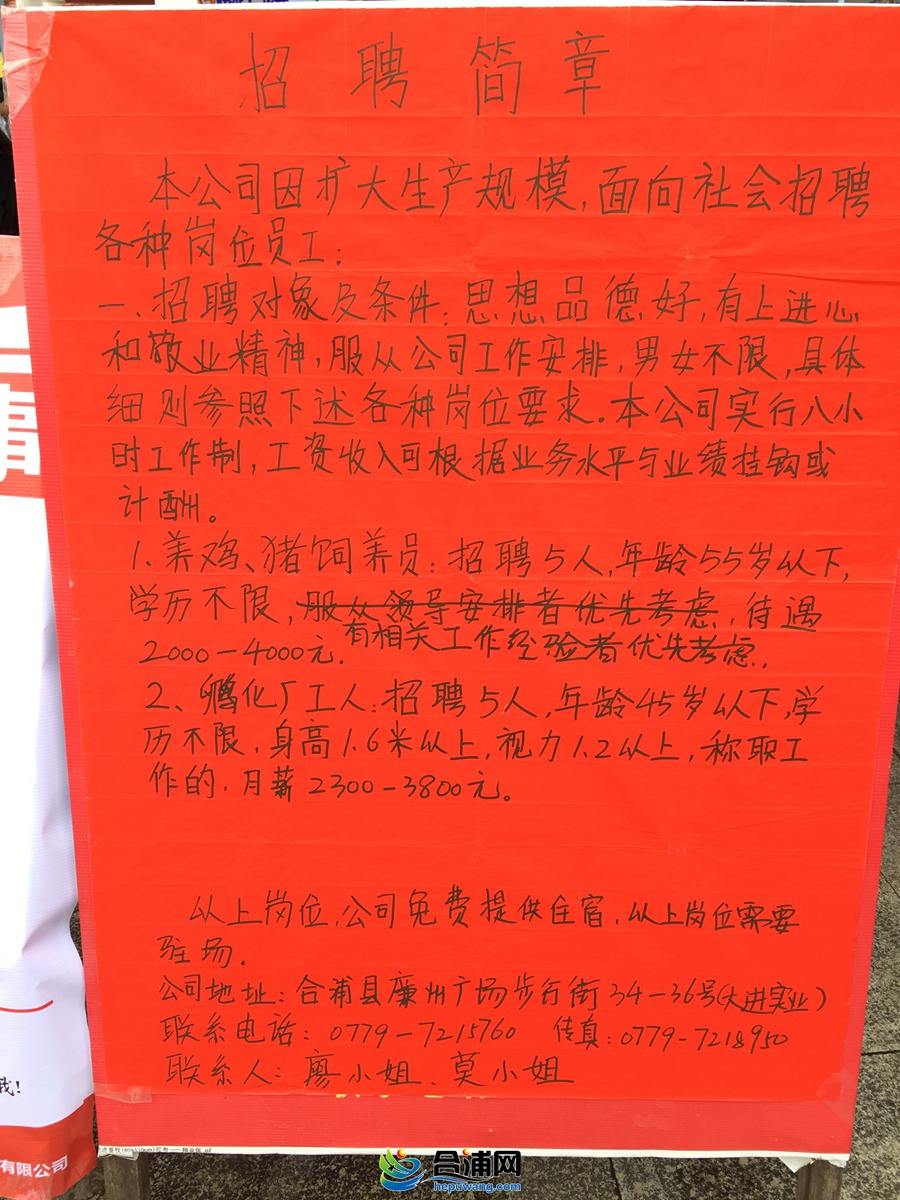 招聘简章
本公司因扩大生产规模,面向社会招聘
各种岗位员工:
一、招聘对象及条件:思想品德好,有上进心
和敬业精神,服从公司工作安排,男女不限,具体
细则参照下述各种岗位要求。本公司实行八小
时工作制,工资收入可根据业务水平与业绩挂钩或
计酬。
1.养鸡、猪饲养员:招聘5人,年龄55岁以下,
学历不限,服从领导安排者优先考虑,待遇
2000-4000元.有相关工作经验者优先考虑,
2、孵化厂工人:招聘5人,年龄45岁以下,学
历不限,身高1.6米以上,视力1.2以上,称职工
作的,月薪2300-3800元。
以上岗位,公司免费提供住宿,以上岗位需要
驻场.
公司地址:合浦县廉州广场步行街34-36号(大进实业)
联系电话:0779-7215760 传真:0779-7218950
联系人:廖小姐、莫小姐
我!
有限公司
合浦网
hepuwang.com